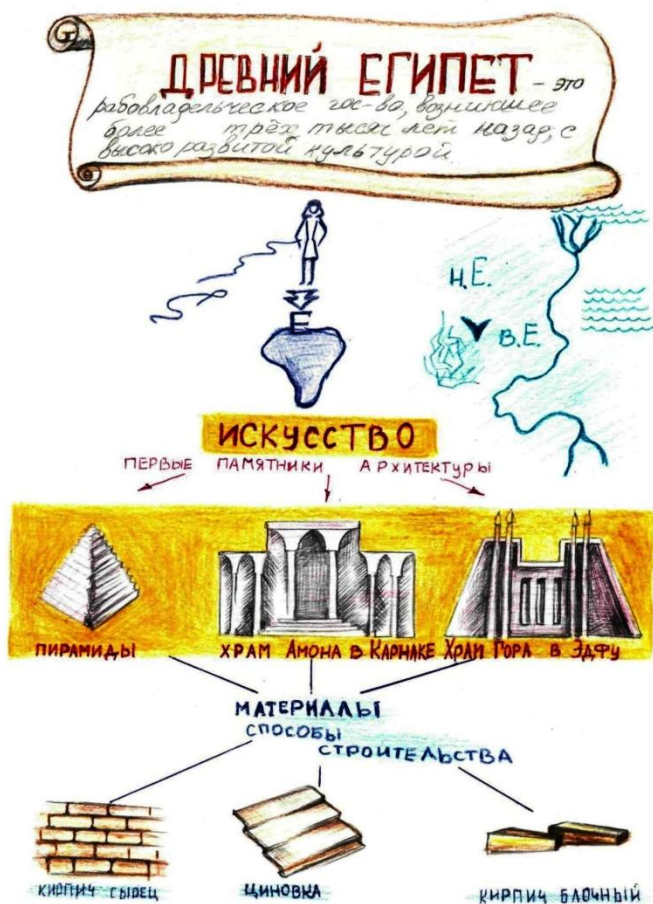 ДРЕВНИЙ ЕГИПЕТ - это
рабовладельческое гос-во, возникшее
более трёх тысяч лет назад, с
высоко развитой культурой.
Н.Е.
В.Е.
Е
ИСКУССТВО
ПЕРВЫЕ ПАМЯТНИКИ АРХИТЕКТУРЫ
ПИРАМИДЫ ХРАМ АМОНА В КАРНАКЕ ХРАМ ГОРА В ЭДФУ
МАТЕРИАЛЫ
СПОСОБЫ
СТРОИТЕЛЬСТВА
КИРПИЧ СЫРЕЦ ЦИНОВКА КИРПИЧ БЛОЧНЫЙ